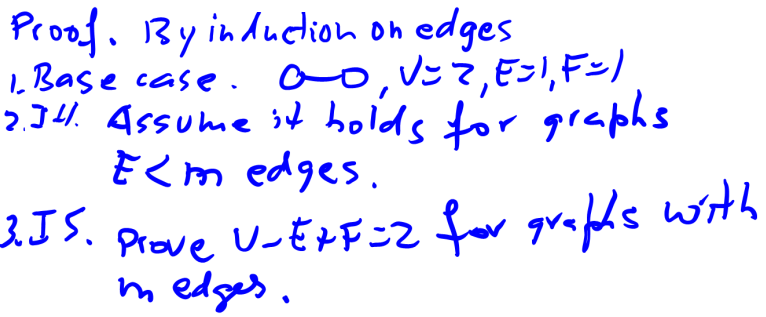 Proof. By induction on edges
1. Base case. O—O, V=2, E=1, F=1
2. IH. Assume it holds for graphs
E<m edges.
3. IS. Prove V-E+F=2 for graphs with
m edges.